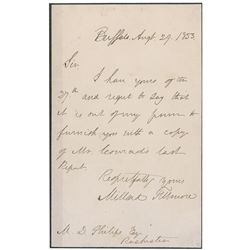 Buffalo, Augt 29. 1853.
Sir.
I have yours of the
27th and regret to say that
it is out of my power to
furnish you with a copy
of Mr. Conrads last
Report.
Respectfully yours
Millard Fillmore
M. D. Philips Esq
Rochester